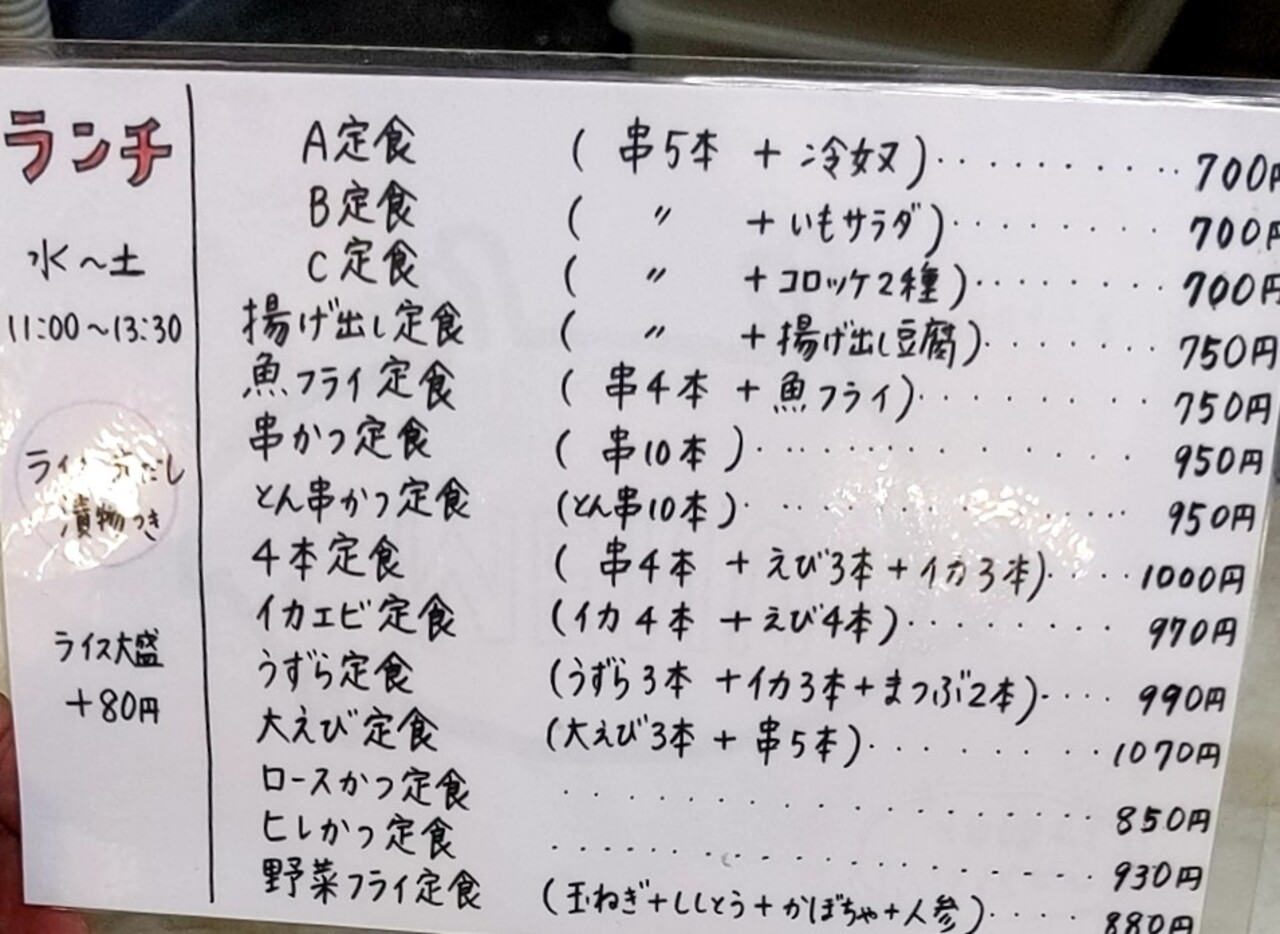 ランチ
水～土
11:00～13:30
漬物つき
ライス大盛
+80円
A定食 (串5本 + 冷奴)・・・・・・・・・・ 700円
B定食 ( 〃 + いもサラダ)・・・・・・・・・ 700円
C定食 ( 〃 + コロッケ2種)・・・・・・・・ 700円
揚げ出し定食 ( 〃 + 揚げ出し豆腐)・・・・・・・ 750円
魚フライ定食 (串4本 + 魚フライ)・・・・・・・・・ 750円
串かつ定食 (串10本)・・・・・・・・・・・ 950円
とん串かつ定食 (とん串10本)・・・・・・・・・・・ 950円
4本定食 (串4本 + えび3本 + イカ3本)・・・・ 1000円
イカエビ定食 (イカ4本 + えび4本)・・・・・・・・ 970円
うずら定食 (うずら3本 + イカ3本 + まつぶ2本)・・・・ 990円
大えび定食 (大えび3本 + 串5本)・・・・・・・・・ 1070円
ロースかつ定食 ・・・・・・・・・・・・・・・・・ 850円
ヒレかつ定食 ・・・・・・・・・・・・・・・・・ 930円
野菜フライ定食 (玉ねぎ+ししとう+かぼちゃ+人参)・・・・ 880円